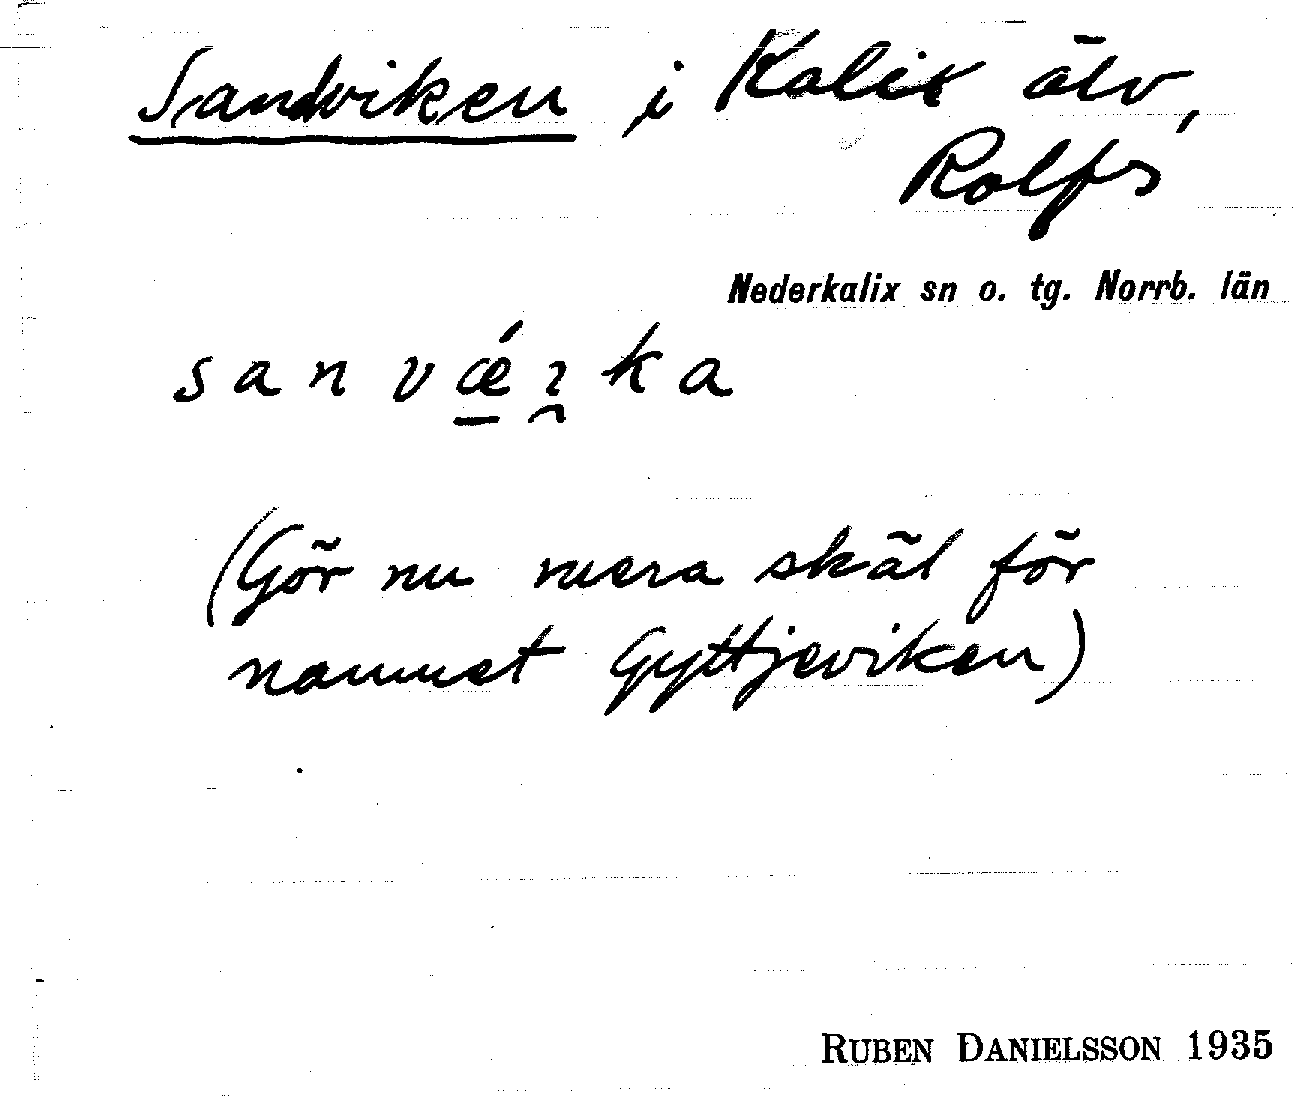 Sandviken i Kalix älv,
Rolfs
Nederkalix sn o. tg. Norrb. län
sanvǽ̱ɿ̯ka
(Gör nu mera skäl för
namnet Gyttjeviken)
RUBEN DANIELSSON 1935